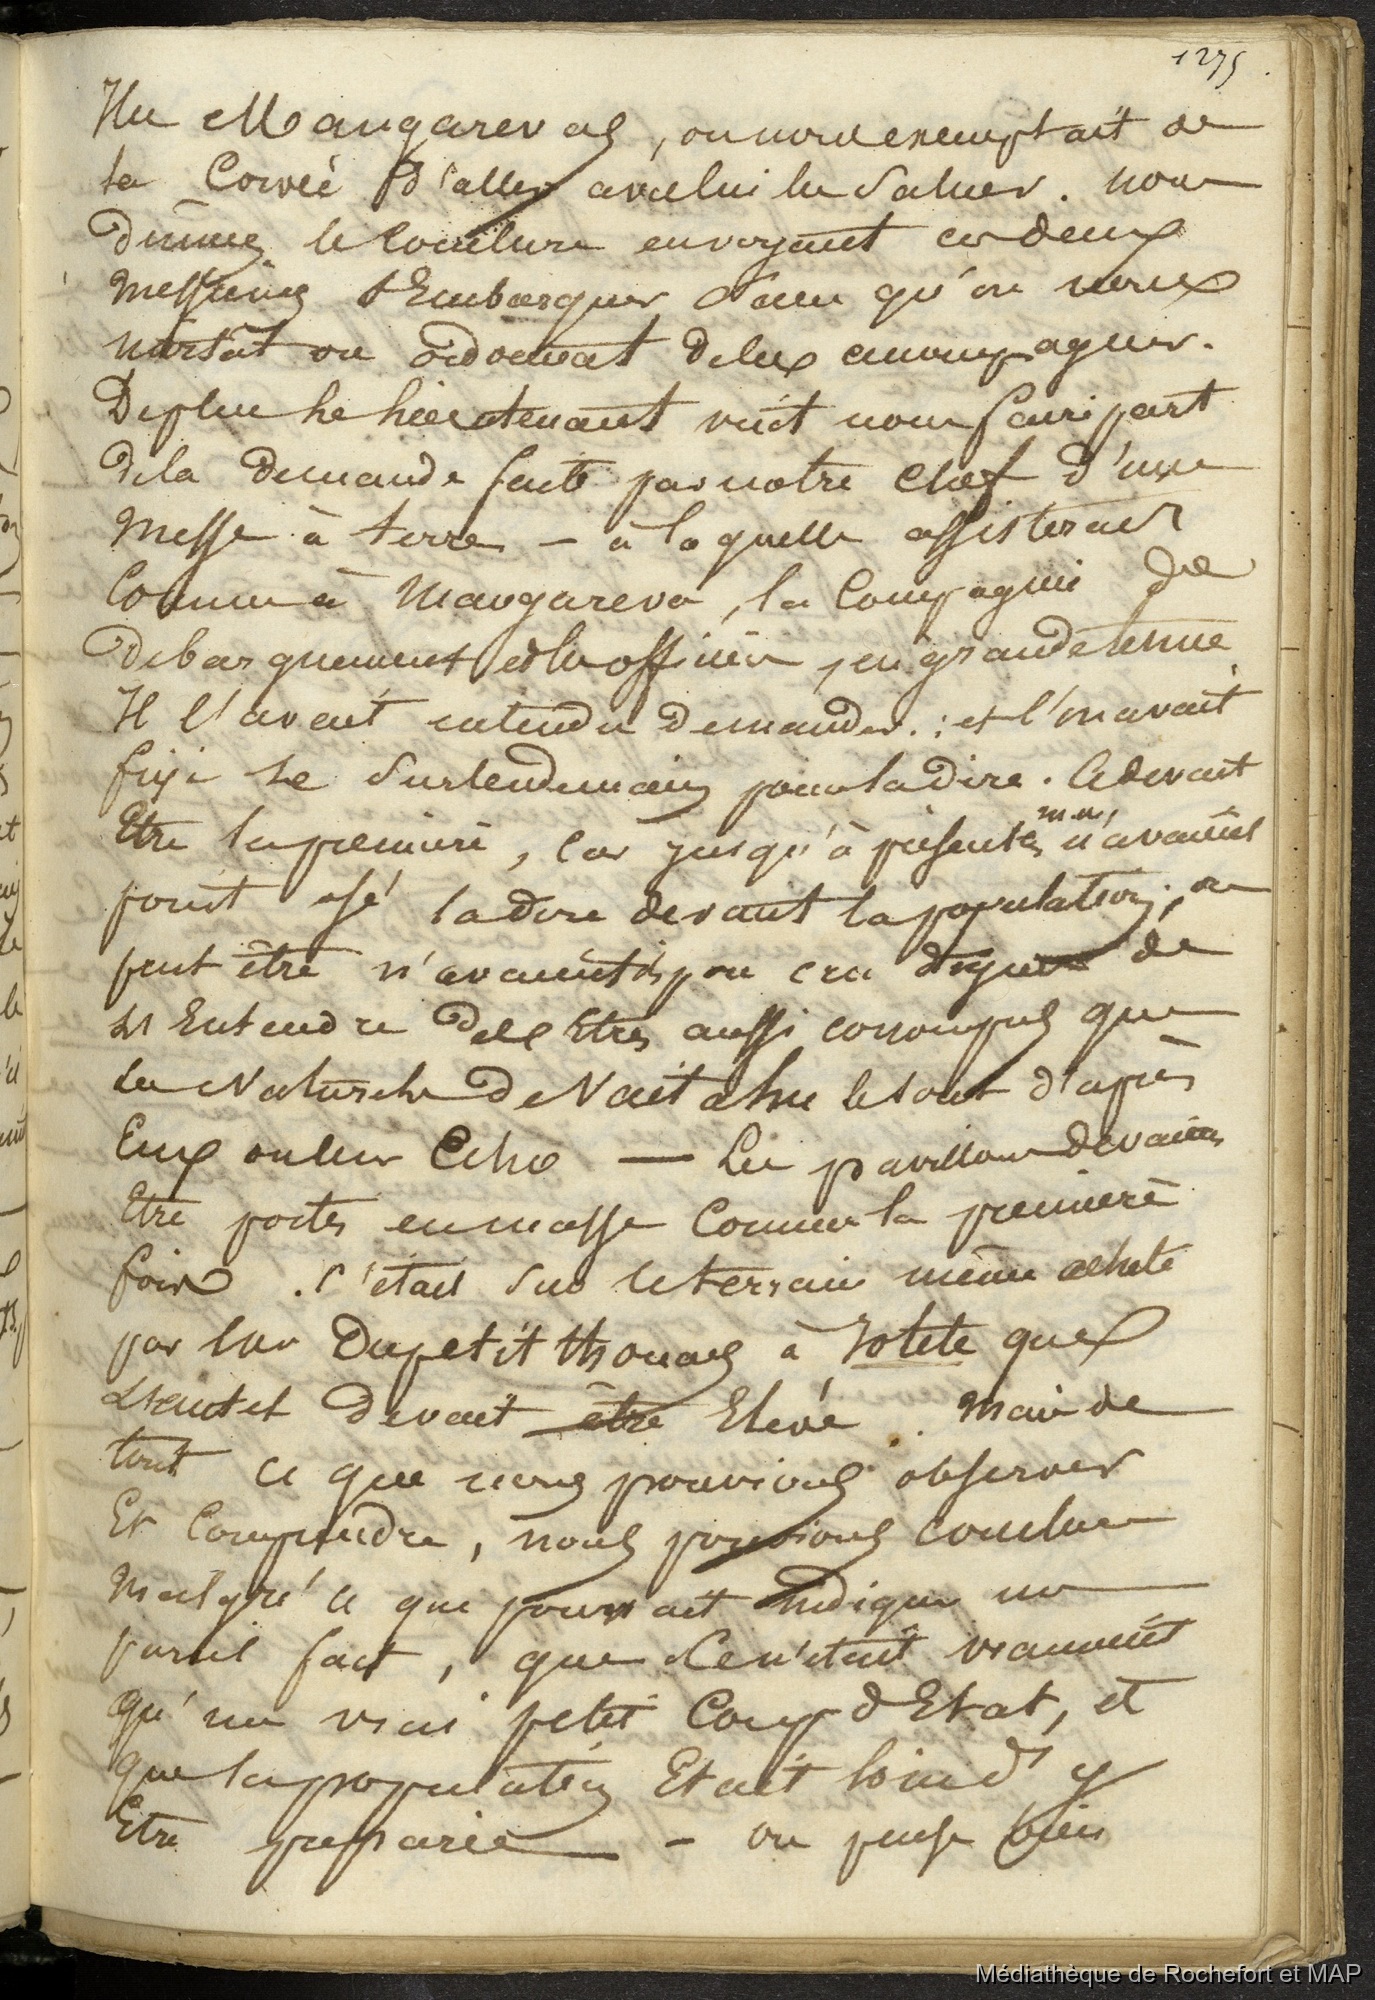 1275
Ile Mangarevas, on nous exemptait de
la Corvée d'aller avec lui le Saluer. nous
dûmes le Conclure en voyant ces deux
Messieurs s'Embarquer sans qu'on nous
invitât ou ordonnat de les accompagner.
De plus le lieutenant vint nous faire part
de la demande faite par notre chef d'une
Messe à terre – à laquelle assisterait
Comme à Mangareva, la Compagnie de
debarquement et les officiers, en grande tenue
Il l'avait entendu demander : et l'on avait
fixé le Surlendemain pour la dire. Ce devait
Etre la premiere, Car jusqu'à présent les m.m. n'avaient
point osé la dire devant la population, ou
peut être n'avaient ils pas cru digne de
l'Entendre des Etres aussi corrompus que
les Naturels de Vaitahu le sont d'après
Eux ou leur Echo — Les pavillons devaient
Etre portés en masse Comme la premiere
fois. C'était Sur le terrain même acheté
par Mr Dupetit thouars à Iotete que
l'autel devait être Elevé. Mais de
tout ce que nous pouvions observer
Et Comprendre, nous pouvions conclure
Malgré ce que pourrait indiquer un
pareil fait, que Ce n'était vraiment
qu'un vrai petit Coup d'Etat, et
que la population Etait loin d'y
Etre préparée – on pense bien
Médiathèque de Rochefort et MAP